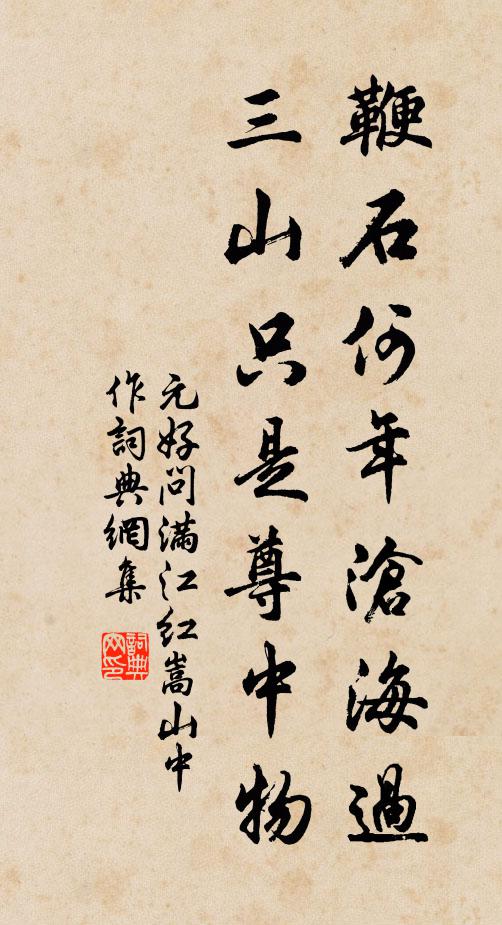 鞭石何年滄海過
三山只是尊中物
元好問滿江紅嵩山中
作詞典網集
詞典網印